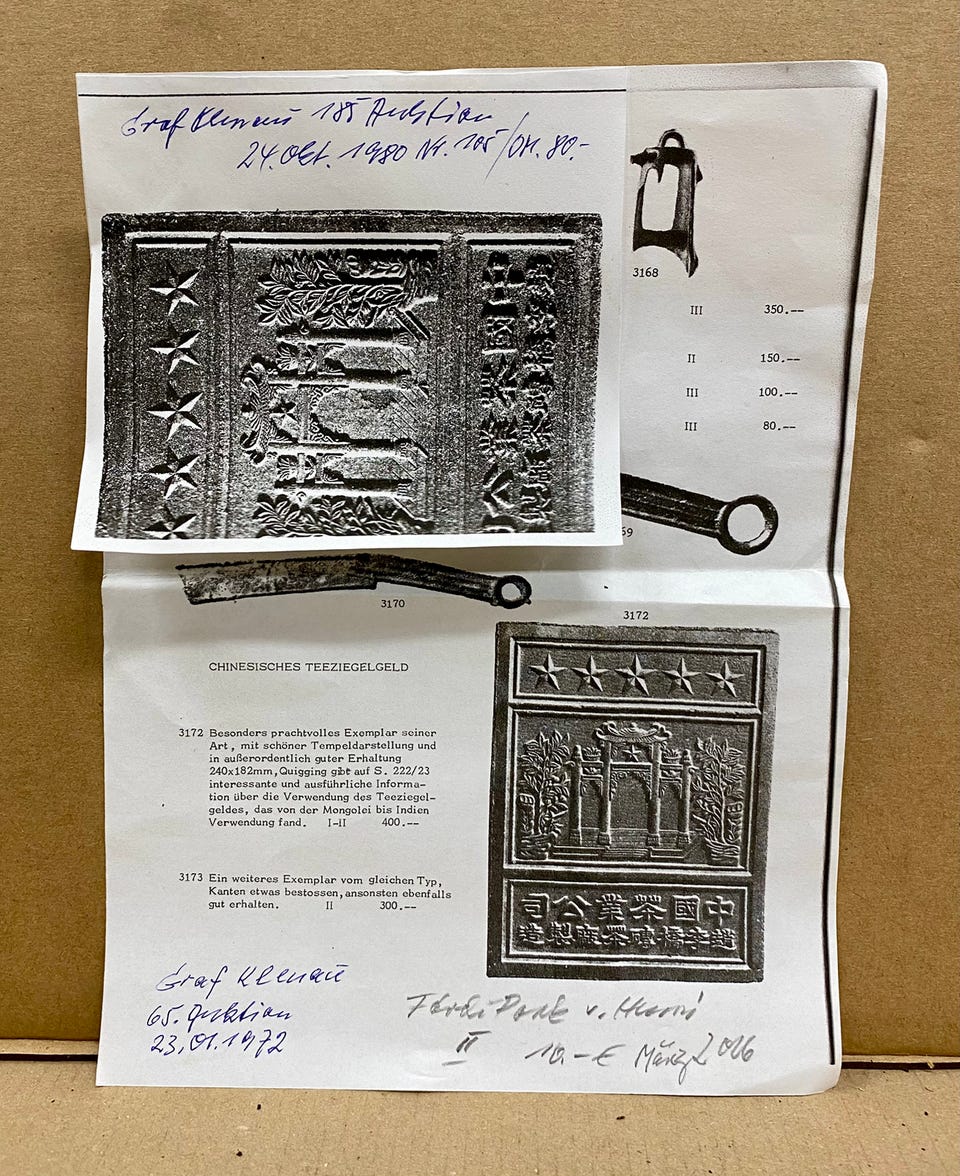 Graf Klenau 185 Auktion
24. Okt. 1980 Nr. 105/DM. 80.-
3168
III 350.--
II 150.--
III 100.--
III 80.--
69
3170
3172
CHINESISCHES TEEZIEGELGELD
3172 Besonders prachtvolles Exemplar seiner
Art, mit schöner Tempeldarstellung und
in außerordentlich guter Erhaltung
240x182mm, Quigging gibt auf S. 222/23
interessante und ausführliche Informa-
tion über die Verwendung des Teeziegel-
geldes, das von der Mongolei bis Indien
Verwendung fand. I-II 400.--
3173 Ein weiteres Exemplar vom gleichen Typ,
Kanten etwas bestossen, ansonsten ebenfalls
gut erhalten. II 300.--
司公業茶國中
造製廠茶磚橋李趙
Graf Klenau
65. Auktion
23.01.1972
v.
II 10.-€ März 2016